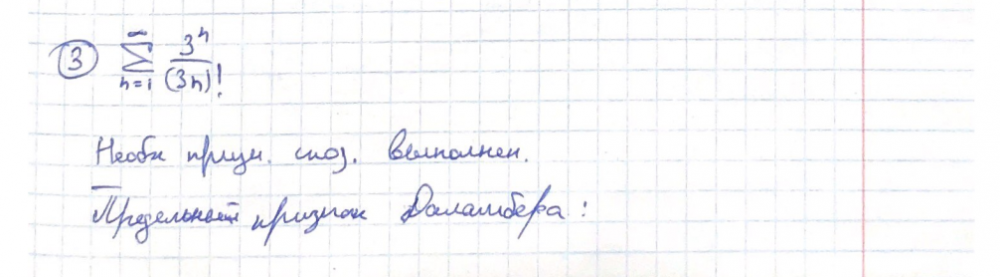 ③ ∑_{n=1}^{∞} 3^n/(3n)!
Необх призн. сход. выполнен.
Предельный признак Даламбера: